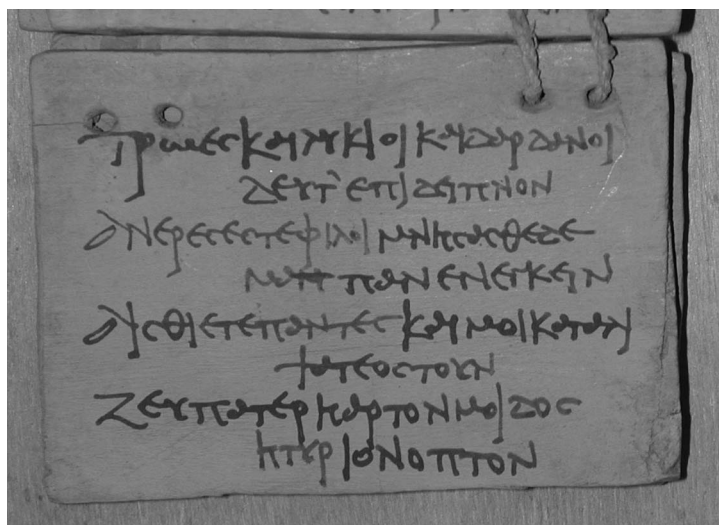 τρωες και λυκιοι και δαρδανοι
δευτ᾽ επι δειπνον
ανερες εστε φιλοι μνησασθε δε
μαππων ενεγκειν
αισθιετε παντες και μοι καταλι
ψατε οστουν
Ζευ πατερ η αρτον μοι δος
η τυριον οπτον